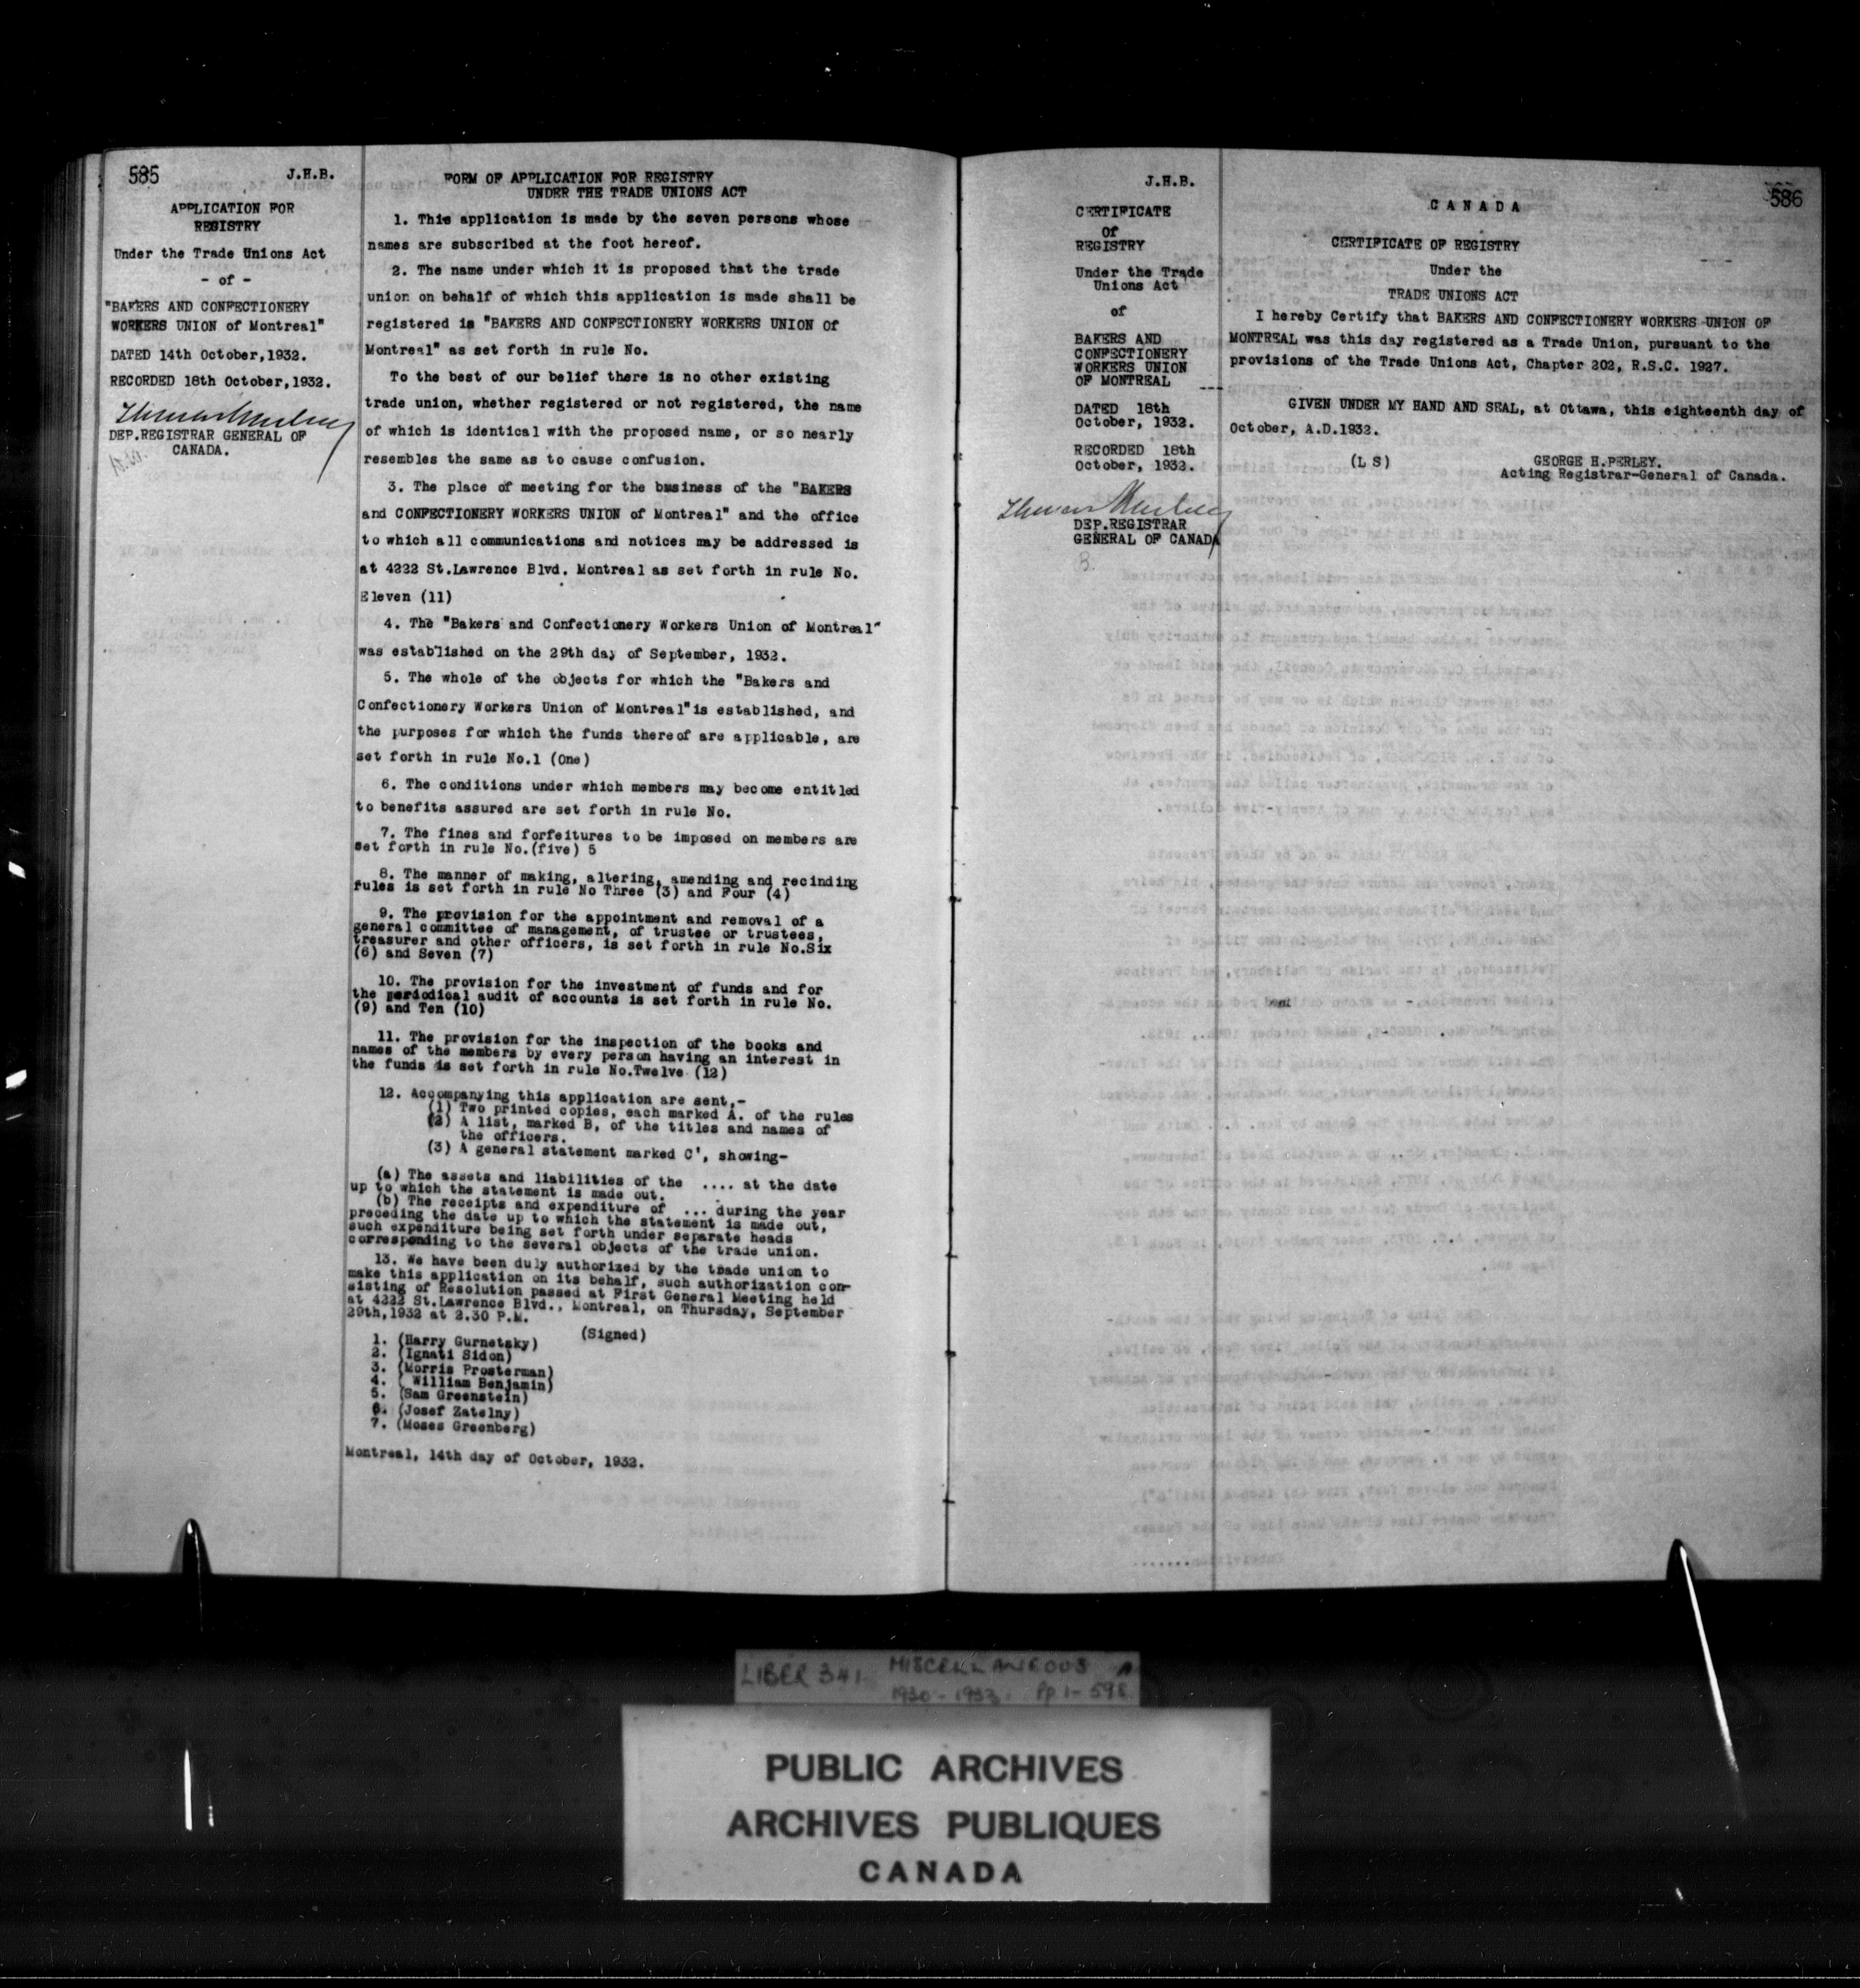 585
J.H.B.
APPLICATION FOR
REGISTRY
Under the Trade Unions Act
- of -
"BAKERS AND CONFECTIONERY
WORKERS UNION of Montreal"
DATED 14th October,1932.
RECORDED 18th October,1932.
DEP.REGISTRAR GENERAL OF
CANADA.
FORM OF APPLICATION FOR REGISTRY
UNDER THE TRADE UNIONS ACT
1. This application is made by the seven persons whose
names are subscribed at the foot hereof.
2. The name under which it is proposed that the trade
union on behalf of which this application is made shall be
registered is "BAKERS AND CONFECTIONERY WORKERS UNION of
Montreal" as set forth in rule No.
To the best of our belief there is no other existing
trade union, whether registered or not registered, the name
of which is identical with the proposed name, or so nearly
resembles the same as to cause confusion.
3. The place of meeting for the business of the "BAKERS
and CONFECTIONERY WORKERS UNION of Montreal" and the office
to which all communications and notices may be addressed is
at 4222 St.Lawrence Blvd. Montreal as set forth in rule No.
Eleven (11)
4. The "Bakers and Confectionery Workers Union of Montreal"
was established on the 29th day of September, 1932.
5. The whole of the objects for which the "Bakers and
Confectionery Workers Union of Montreal" is established, and
the purposes for which the funds thereof are applicable, are
set forth in rule No.1 (One)
6. The conditions under which members may become entitled
to benefits assured are set forth in rule No.
7. The fines and forfeitures to be imposed on members are
set forth in rule No.(five) 5
8. The manner of making, altering, amending and recinding
rules is set forth in rule No Three (3) and Four (4)
9. The provision for the appointment and removal of a
general committee of management, of trustee or trustees,
treasurer and other officers, is set forth in rule No.Six
(6) and Seven (7)
10. The provision for the investment of funds and for
the periodical audit of accounts is set forth in rule No.
(9) and Ten (10)
11. The provision for the inspection of the books and
names of the members by every person having an interest in
the funds is set forth in rule No.Twelve (12)
12. Accompanying this application are sent,-
(1) Two printed copies, each marked A. of the rules
(2) A list, marked B, of the titles and names of
the officers.
(3) A general statement marked C', showing-
(a) The assets and liabilities of the .... at the date
up to which the statement is made out.
(b) The receipts and expenditure of ... during the year
preceding the date up to which the statement is made out,
such expenditure being set forth under separate heads
corresponding to the several objects of the trade union.
13. We have been duly authorized by the trade union to
make this application on its behalf, such authorization con-
sisting of Resolution passed at First General Meeting held
at 4222 St.Lawrence Blvd., Montreal, on Thursday, September
29th,1932 at 2.30 P.M.
(Signed)
1. (Harry Gurnetsky)
2. (Ignati Sidon)
3. (Morris Prosterman)
4. ( William Benjamin)
5. (Sam Greenstein)
6. (Josef Zatelny)
7. (Moses Greenberg)
Montreal, 14th day of October, 1932.
J.H.B.
CERTIFICATE
of
REGISTRY
Under the Trade
Unions Act
of
BAKERS AND
CONFECTIONERY
WORKERS UNION
OF MONTREAL
DATED 18th
October, 1932.
RECORDED 18th
October, 1932.
DEP.REGISTRAR
GENERAL OF CANADA
B.
586
CANADA
CERTIFICATE OF REGISTRY
Under the
TRADE UNIONS ACT
I hereby Certify that BAKERS AND CONFECTIONERY WORKERS UNION OF
MONTREAL was this day registered as a Trade Union, pursuant to the
provisions of the Trade Unions Act, Chapter 202, R.S.C. 1927.
GIVEN UNDER MY HAND AND SEAL, at Ottawa, this eighteenth day of
October, A.D.1932.
(L S)
GEORGE H.PERLEY.
Acting Registrar-General of Canada.
LIBER 341 MISCELLANEOUS A
1930-1933. Pp 1-598
PUBLIC ARCHIVES
ARCHIVES PUBLIQUES
CANADA